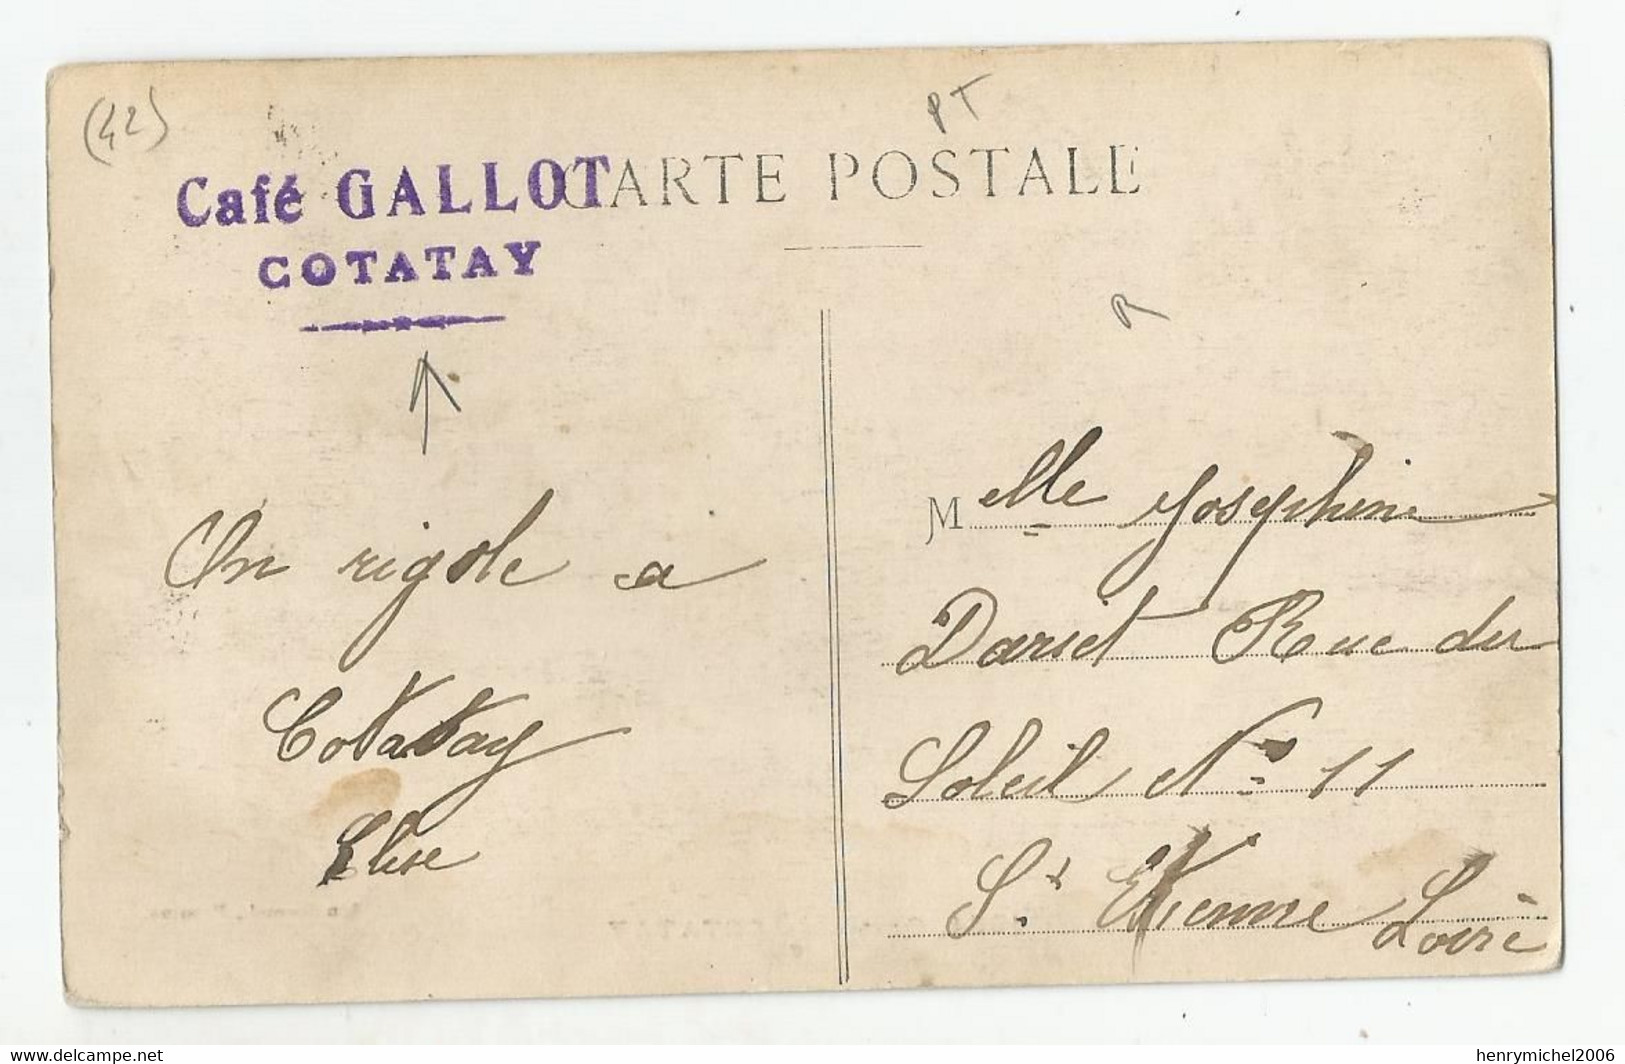 (42)
PT
Café GALLOT
CARTE POSTALE
COTATAY
R
On rigole a
Cotatay
Elise
Melle Josephine
Dariet Rue du
Soleil No 11
St Etienne Loire
COTATAY
www.delcampe.net
henrymichel2006